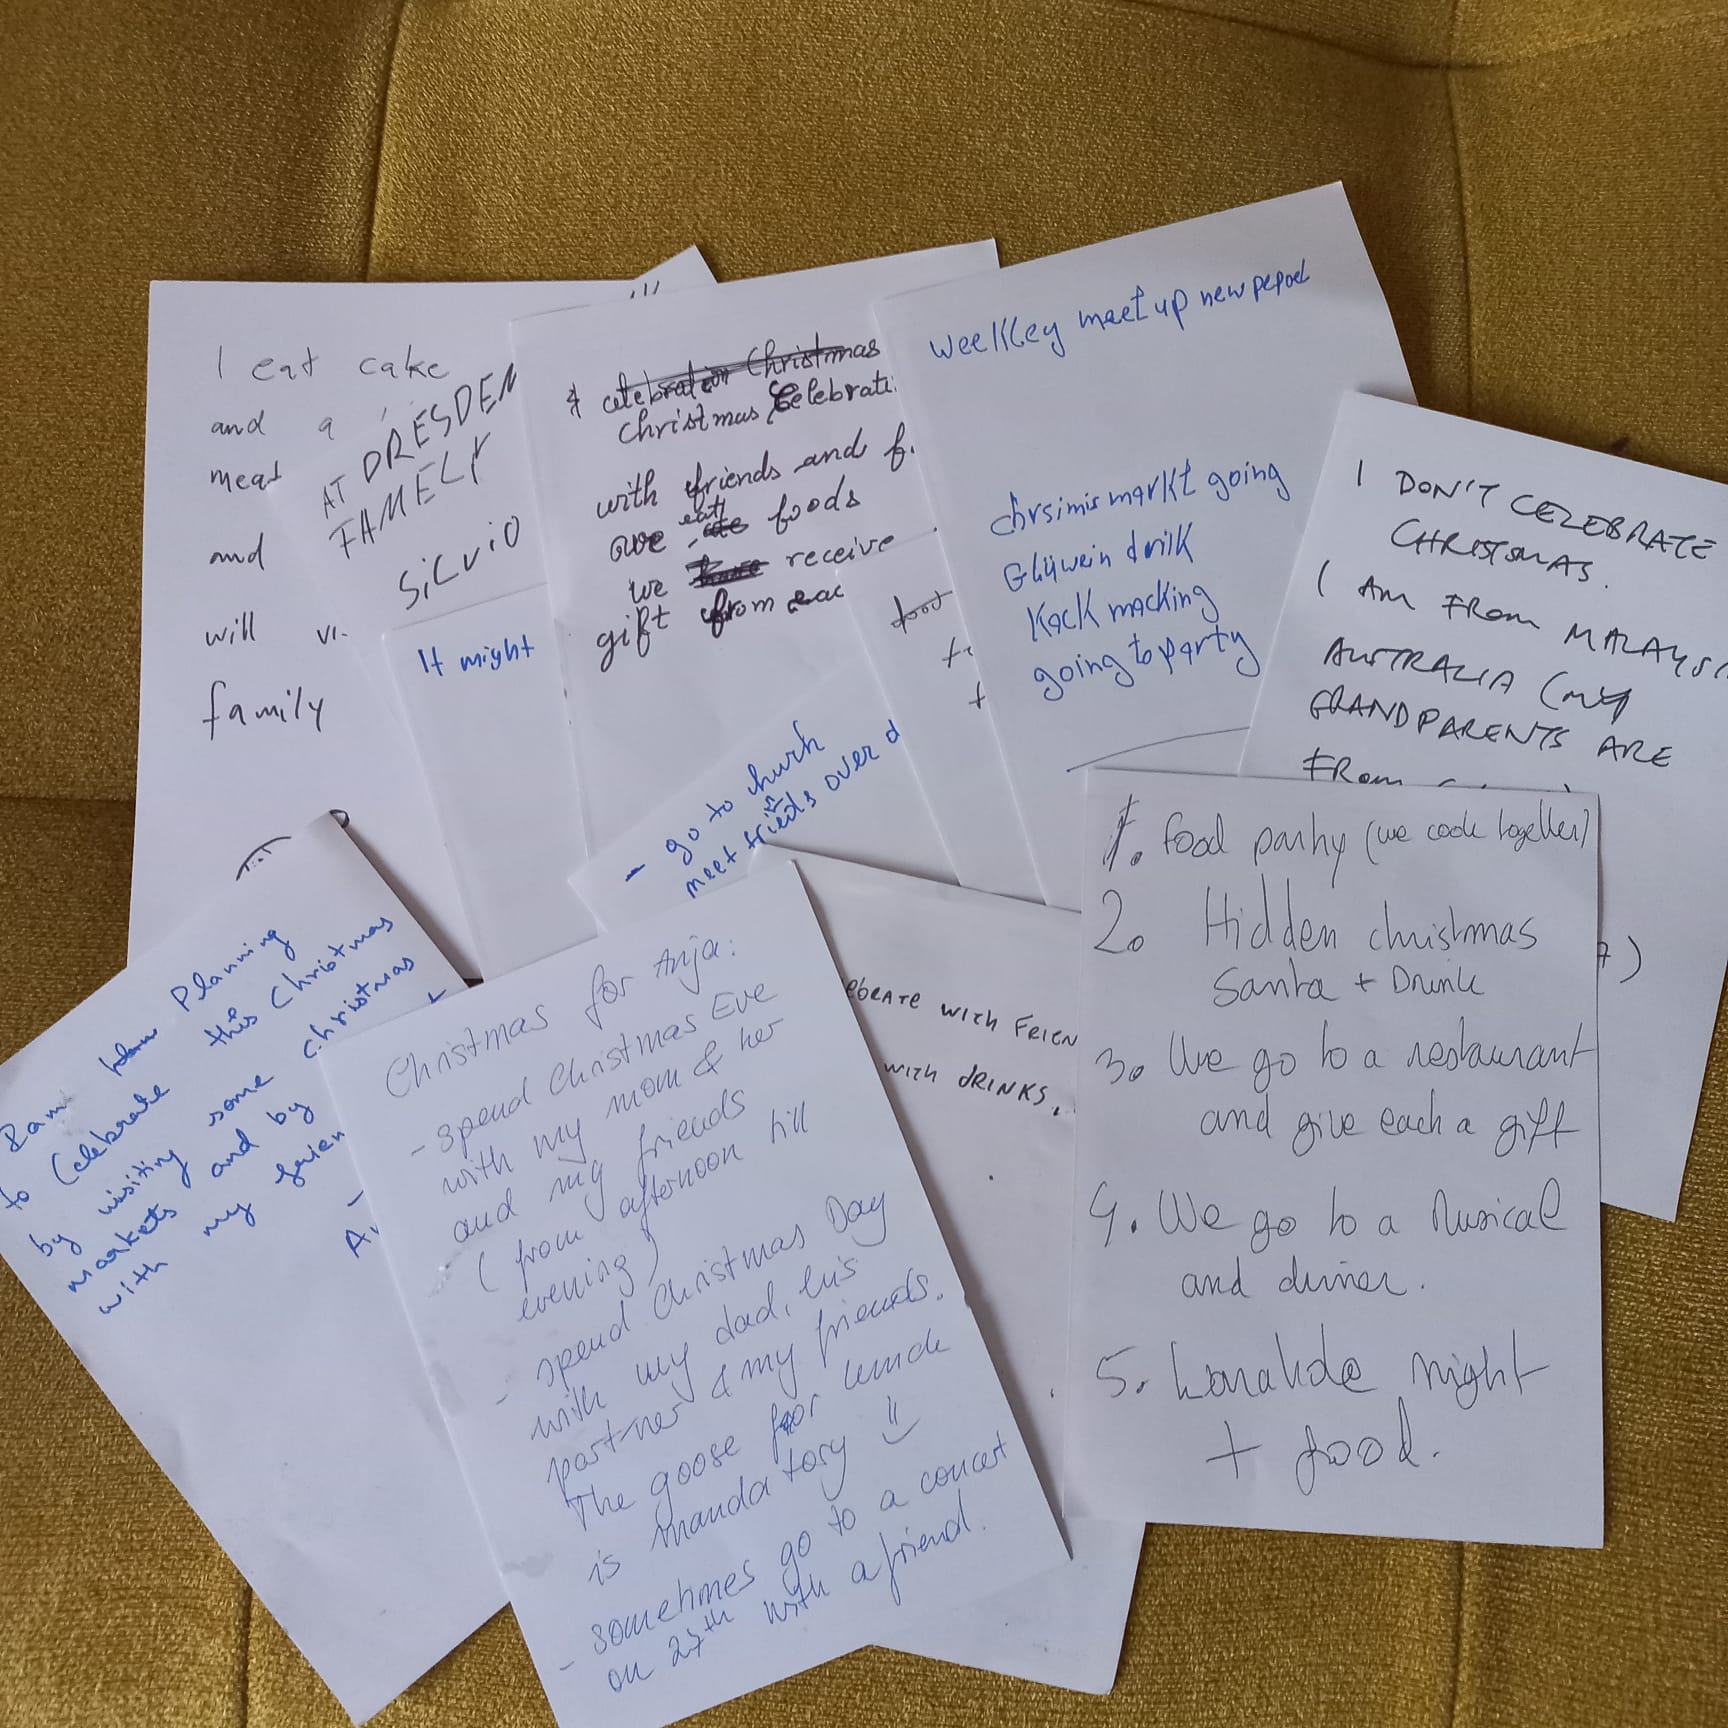 I eat cake
and a
meat
and
will vi
family
AT DRESDEN
FAMELY
SiLViO
It might
celebration Christmas
christmas Celebrati
with friends and f
we eat foods
we have receive
gift from eac
food
weekley meet up new pepoel
chrsimis markt going
Glüwein drilk
Kack macking
going to party
I DON'T CELEBRATE
CHRISTMAS.
I AM FROM MALAYSI
AUSTRALIA (my
GRANDPARENTS ARE
FROM
)
- go to church
meet friends over d
in
1. food party (we cook together)
2. Hidden christmas
Santa + Drink
3. We go to a restaurant
and give each a gift
4. We go to a Musical
and dinner.
5. Karakoe night
+ food.
ebrate with Frien
with drinks.
I am planning
to Celebrate this Christmas
by visiting some christmas
markets and by
with my frien
Christmas for Anja:
- spend Christmas Eve
with my mom & her
and my friends
(from afternoon till
evening)
- spend Christmas Day
with my dad, his
partner & my friends.
The goose for lunch
is mandatory
- sometimes go to a concert
on 27th with a friend.